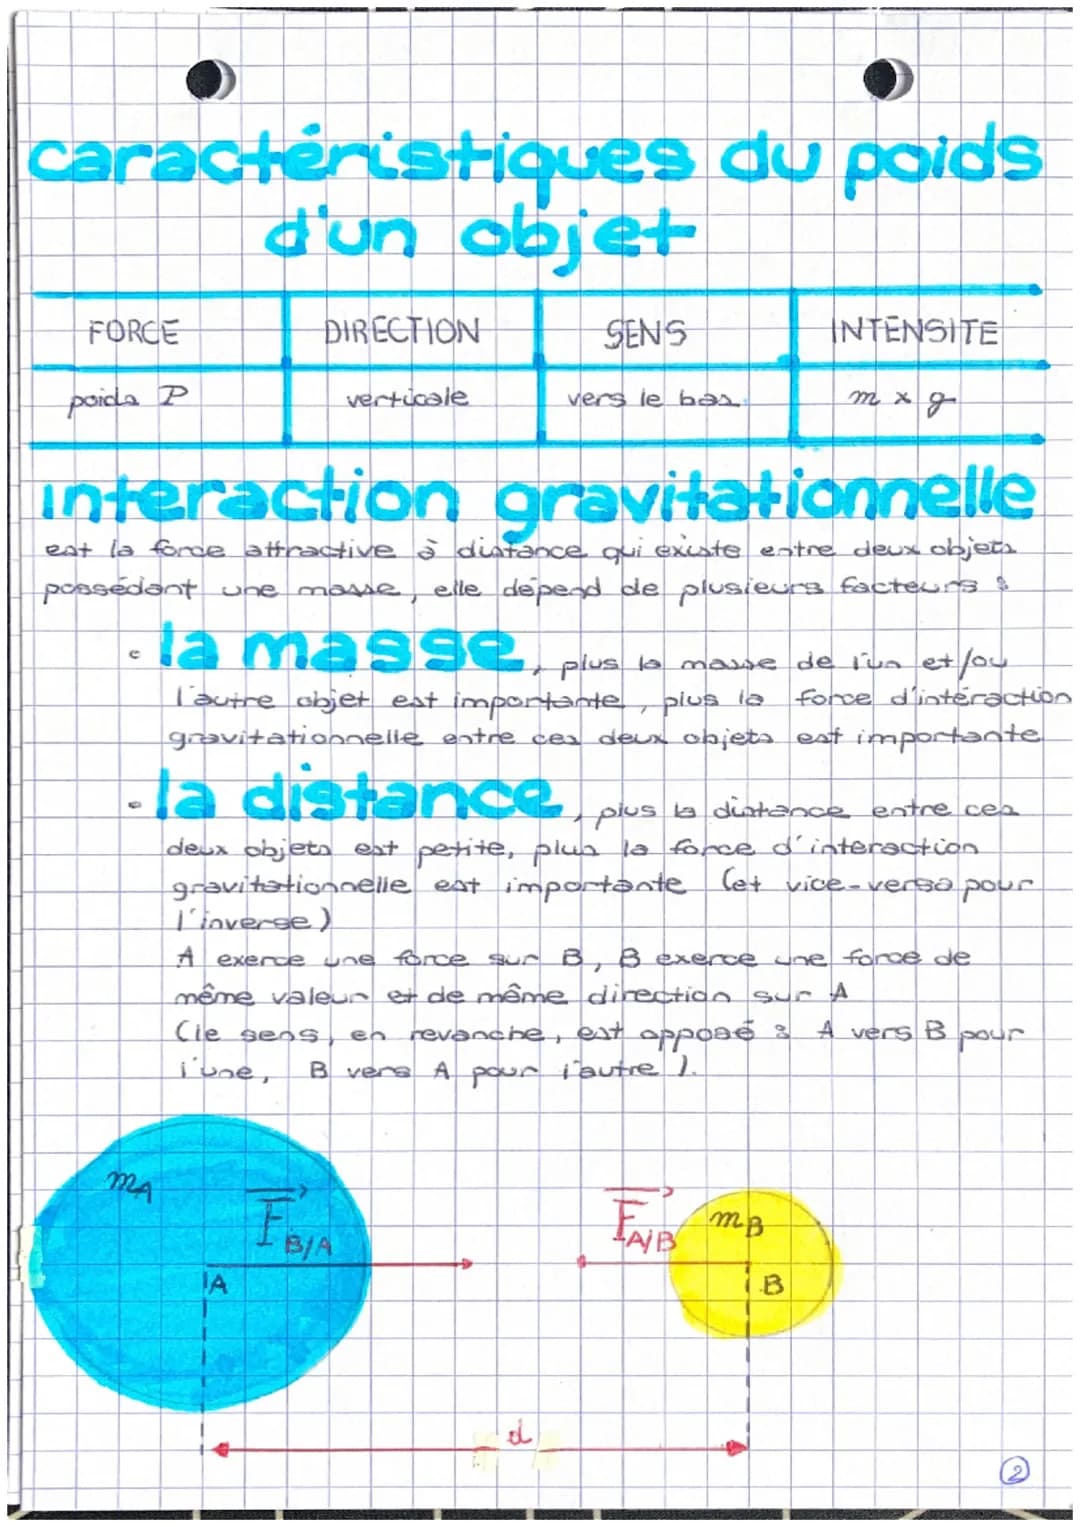 caractéristiques du poids
d'un objet
FORCE DIRECTION SENS INTENSITE
poids P verticale vers le bas m x g
interaction gravitationnelle
est la force attractive à distance qui existe entre deux objets
possédant une masse, elle dépend de plusieurs facteurs :
• la masse, plus la masse de l'un et/ou
l'autre objet est importante, plus la force d'intéraction
gravitationnelle entre ces deux objets est importante
• la distance, plus la distance entre ces
deux objets est petite, plus la force d'interaction
gravitationnelle est importante (et vice-versa pour
l'inverse)
A exerce une force sur B, B exerce une force de
même valeur et de même direction sur A
(le sens, en revanche, est opposé : A vers B pour
l'une, B vers A pour l'autre).
mA F B/A F A/B mB
A B
d
2